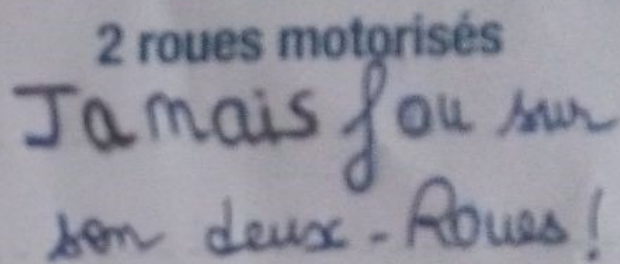 2 roues motorisés
Jamais fou sur
son deux-Roues !